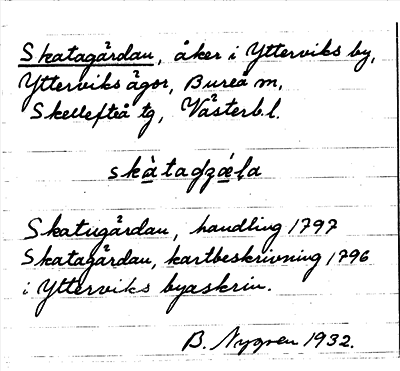 Skatagårdan, åker i Ytterviks by,
Ytterviks ägor, Bureå sn,
Skellefteå tg, Västerb.l.
skà̱tagzǽ̱la
Skatugårdan, handling 1797
Skatagårdan, kartbeskrivning 1796
i Ytterviks byaskrin.
B. Nygren 1932.